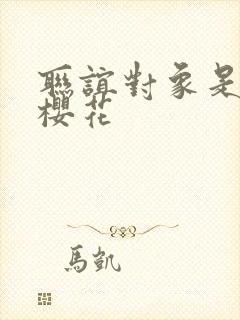 聯誼對象是
櫻花
馬凱